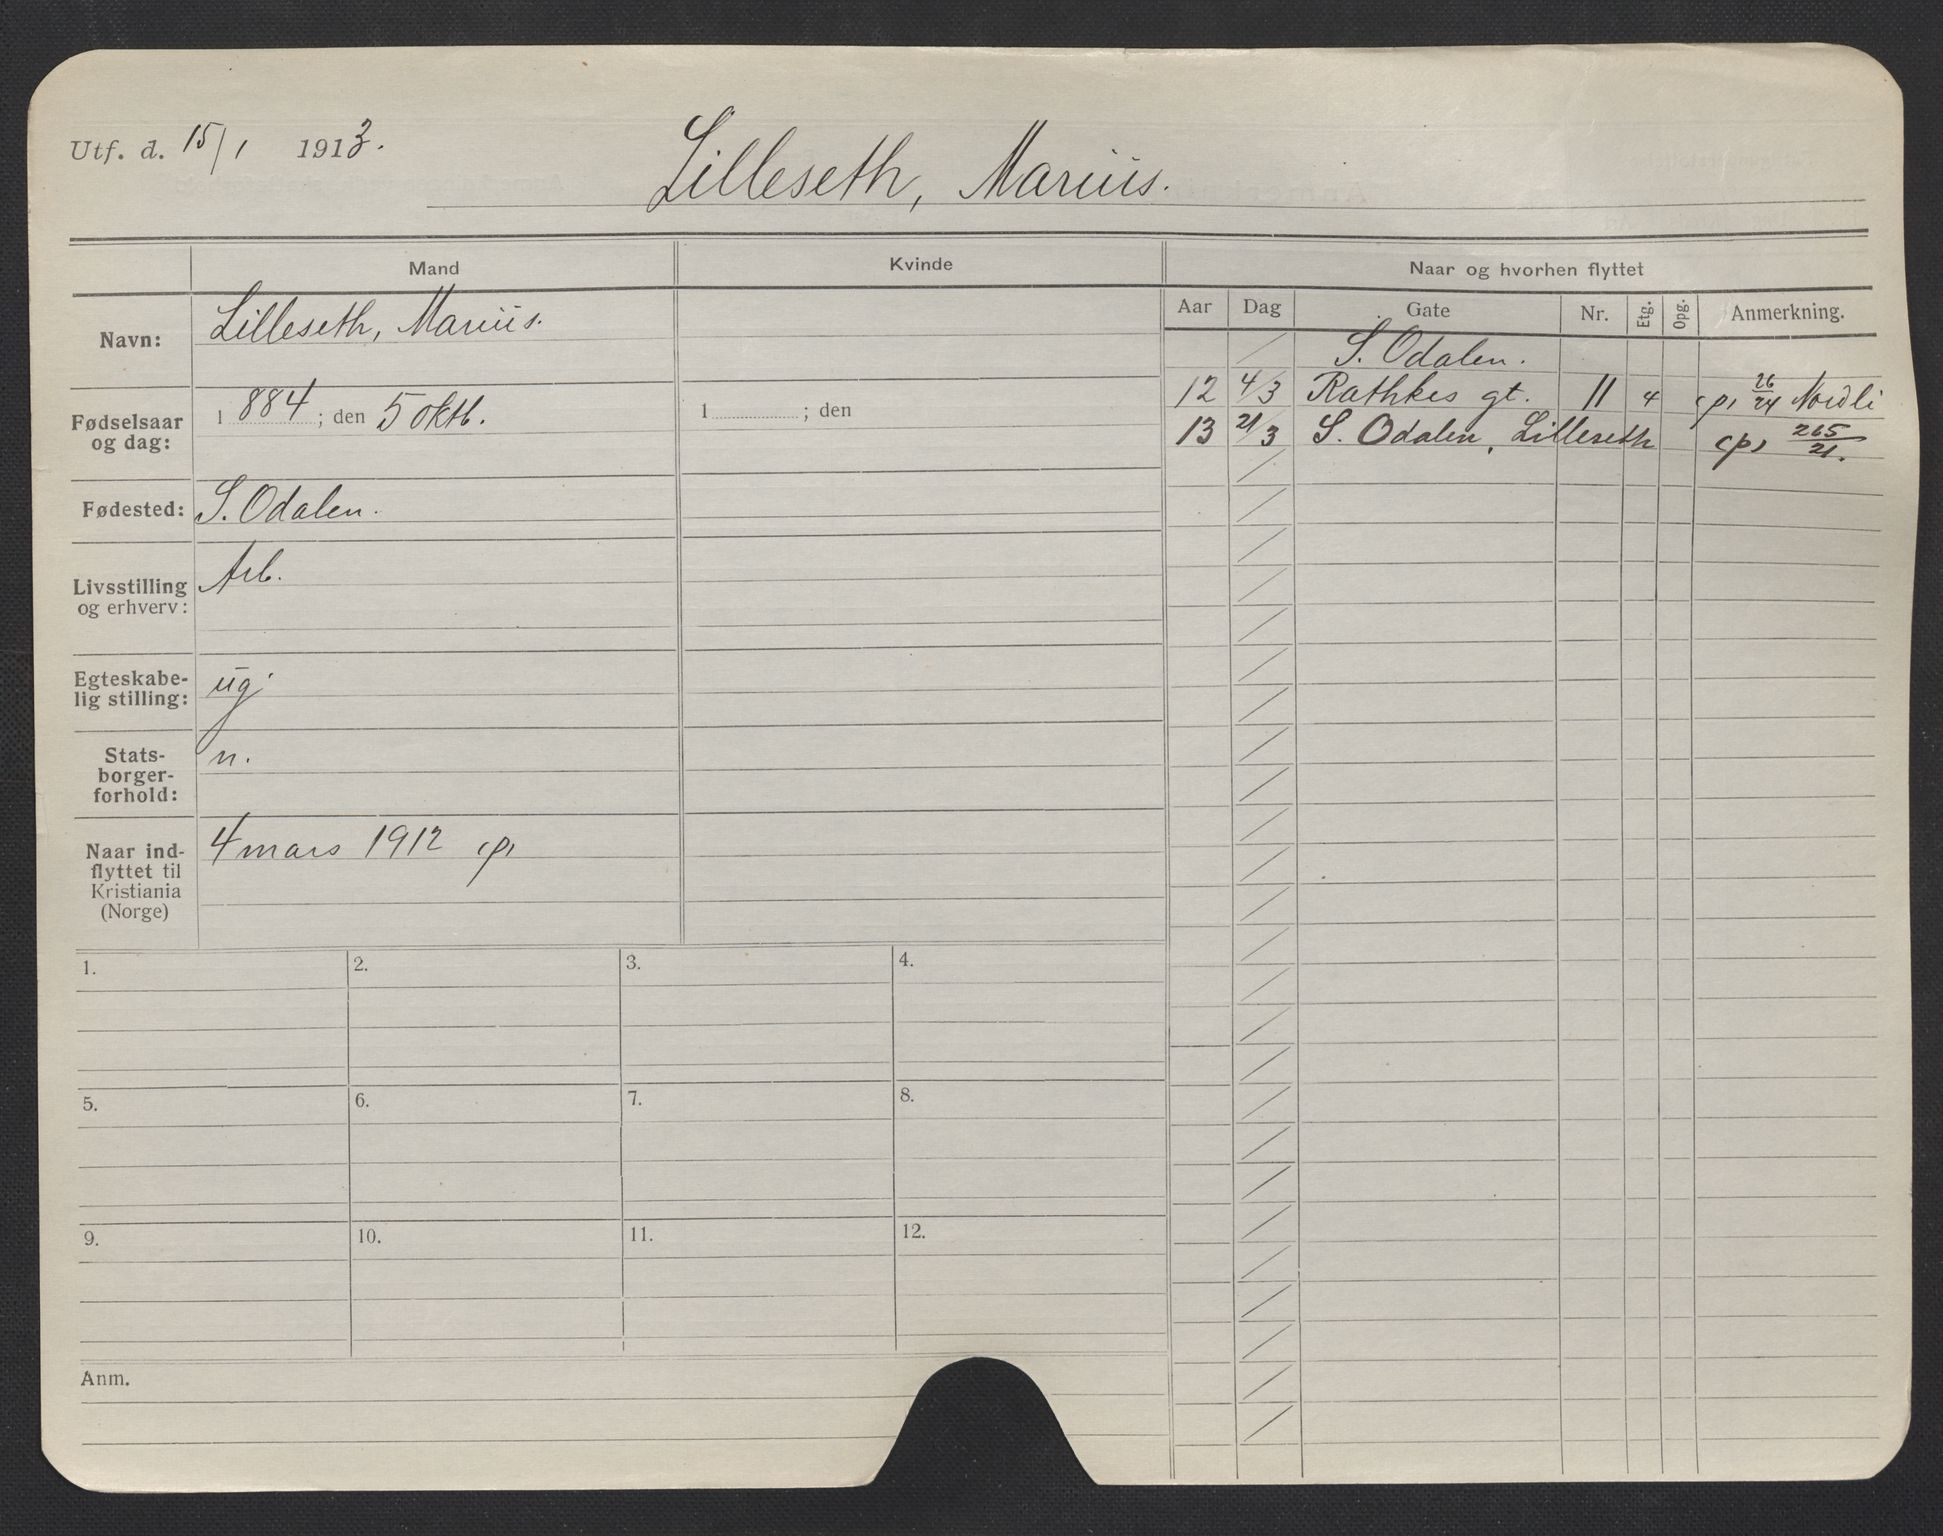 Utf. d. 15/1 1913.
Lilleseth, Marius.
Mand
Kvinde
Naar og hvorhen flyttet
Aar Dag Gate Nr. Etg. Opg. Anmerkning.
S. Odalen.
12 4/3 Rathkes gt. 11 4 (p) 26/24 Nordli
13 21/3 S. Odalen, Lilleseth (p) 265/21.
Navn: Lilleseth, Marius.
Fødselsaar og dag: 1884; den 5 oktb. 1 ; den
Fødested: S. Odalen.
Livsstilling og erhverv: Arb.
Egteskabe-
lig stilling: ug.
Stats-
borger-
forhold: n.
Naar ind-
flyttet til
Kristiania
(Norge) 4 mars 1912 (p)
1. 2. 3. 4.
5. 6. 7. 8.
9. 10. 11. 12.
Anm.